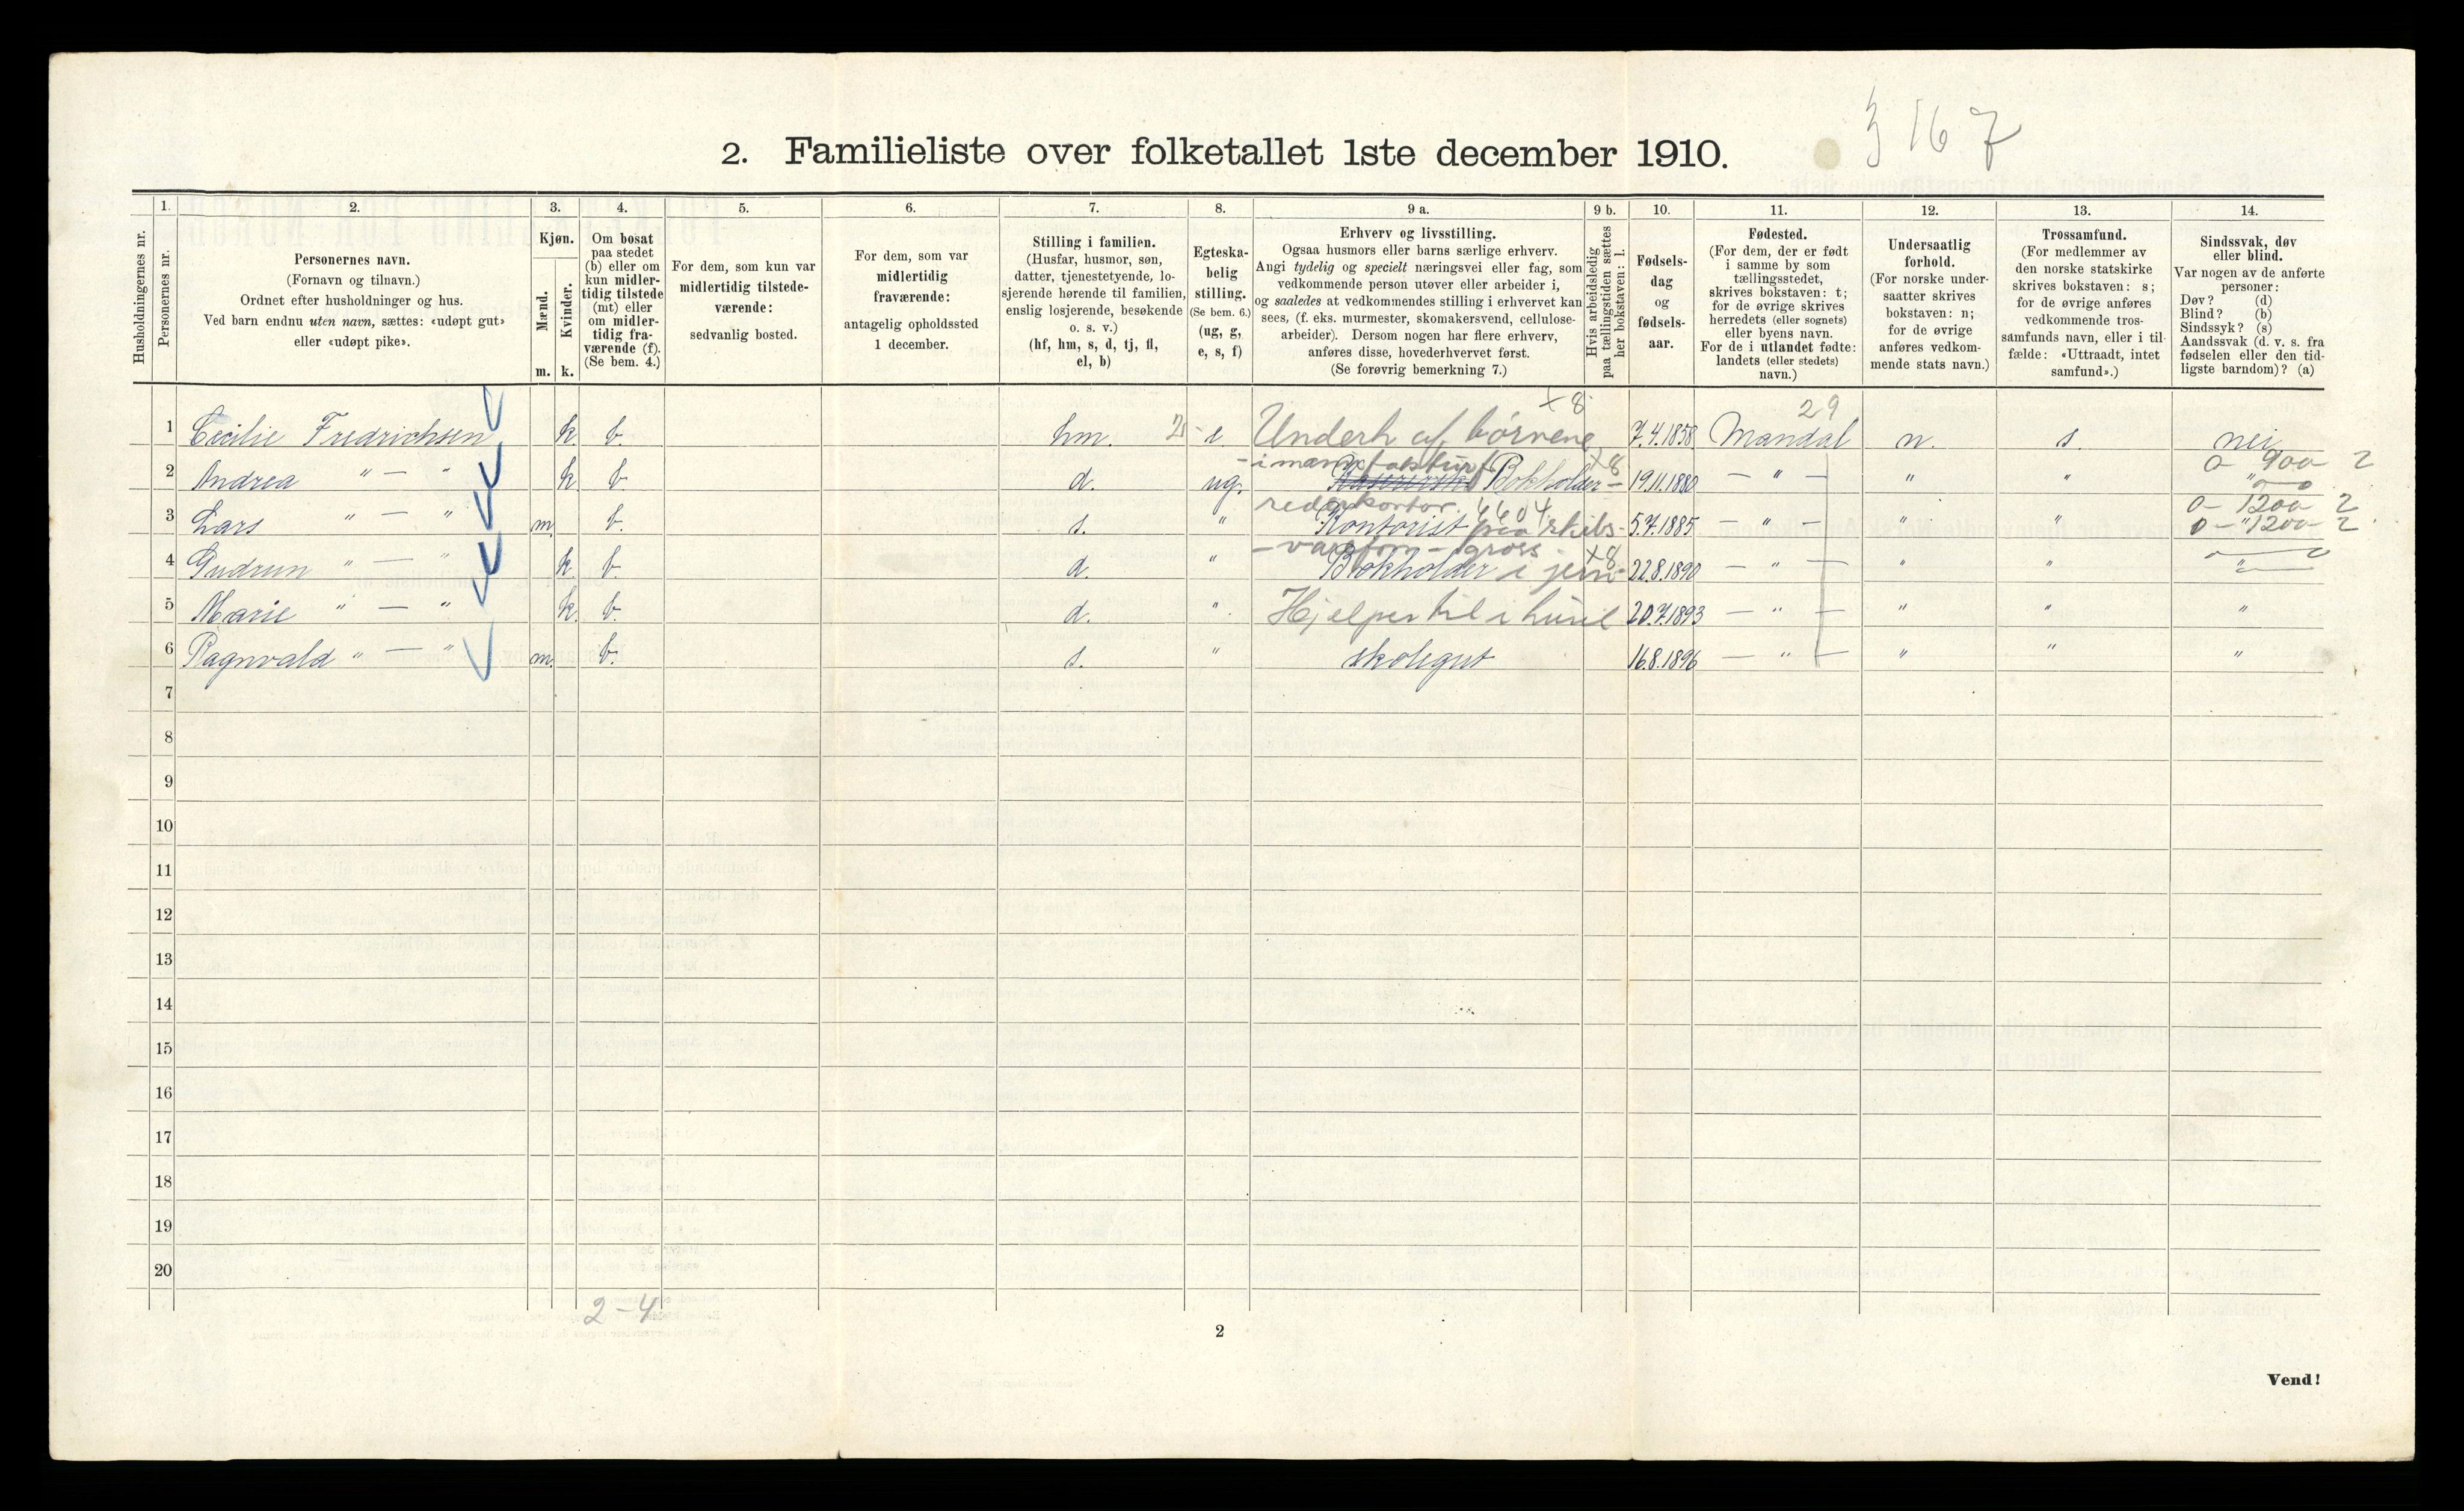 3167
2. Familieliste over folketallet 1ste december 1910.
Husholdningernes nr.
1.
Personernes nr.
2.
Personernes navn.
(Fornavn og tilnavn.)
Ordnet efter husholdninger og hus.
Ved barn endnu uten navn, sættes: «udøpt gut»
eller «udøpt pike».
3.
Kjøn.
Mænd.
Kvinder.
m. k.
4.
Om bosat
paa stedet
(b) eller om
kun midler-
tidig tilstede
(mt) eller
om midler-
tidig fra-
værende (f).
(Se bem. 4.)
5.
For dem, som kun var
midlertidig tilstede-
værende:
sedvanlig bosted.
6.
For dem, som var
midlertidig
fraværende:
antagelig opholdssted
1 december.
7.
Stilling i familien.
(Husfar, husmor, søn,
datter, tjenestetyende, lo-
sjerende hørende til familien,
enslig losjerende, besøkende
o. s. v.)
(hf, hm, s, d, tj, fl,
el, b)
8.
Egteska-
belig
stilling.
(Se bem. 6.)
(ug, g,
e, s, f)
9 a.
Erhverv og livsstilling.
Ogsaa husmors eller barns særlige erhverv.
Angi tydelig og specielt næringsvei eller fag, som
vedkommende person utøver eller arbeider i,
og saaledes at vedkommendes stilling i erhvervet kan
sees, (f. eks. murmester, skomakersvend, cellulose-
arbeider). Dersom nogen har flere erhverv,
anføres disse, hovederhvervet først.
(Se forøvrig bemerkning 7.)
9 b.
Hvis arbeidsledig
paa tællingstiden sættes
her bokstaven: l.
10.
Fødsels-
dag
og
fødsels-
aar.
11.
Fødested.
(For dem, der er født
i samme by som
tællingsstedet,
skrives bokstaven: t;
for de øvrige skrives
herredets (eller sognets)
eller byens navn.
For de i utlandet fødte:
landets (eller stedets)
navn.)
12.
Undersaatlig
forhold.
(For norske under-
saatter skrives
bokstaven: n;
for de øvrige
anføres vedkom-
mende stats navn.)
13.
Trossamfund.
(For medlemmer av
den norske statskirke
skrives bokstaven: s;
for de øvrige anføres
vedkommende tros-
samfunds navn, eller i til-
fælde: «Uttraadt, intet
samfund».)
14.
Sindssvak, døv
eller blind.
Var nogen av de anførte
personer:
Døv? (d)
Blind? (b)
Sindssyk? (s)
Aandssvak (d. v. s. fra
fødselen eller den tid-
ligste barndom)? (a)
x 8 29
1 Cecilie Fredrichsen k. b. hm. e. Underh af børnene 7.4.1858 Mandal n. s. nei
x8 0 - 900 - 2
2 Andrea " — " k b. d. ug. Bokholder - 19.11.1880 — " — " " "
rederkontor. 4604 0 - 1200 2
3 Lars " — " m b. s. " Kontorist paa skibs- 5.7.1885 — " — " " "
0 - 1200 - 2
- gross x8
4 Gudrun " — " k. b. d. " Bokholder i jern- 22.8.1890 — " — " " "
5 Marie " — " k. b. d. " Hjelper til i huset 20.7.1893 — " — " " "
6 Ragnvald " — " m. b. s. " skolegut 16.8.1896 — " — " " "
7
8
9
10
11
12
13
14
15
16
17
18
19
20
2 - 4
2
Vend!